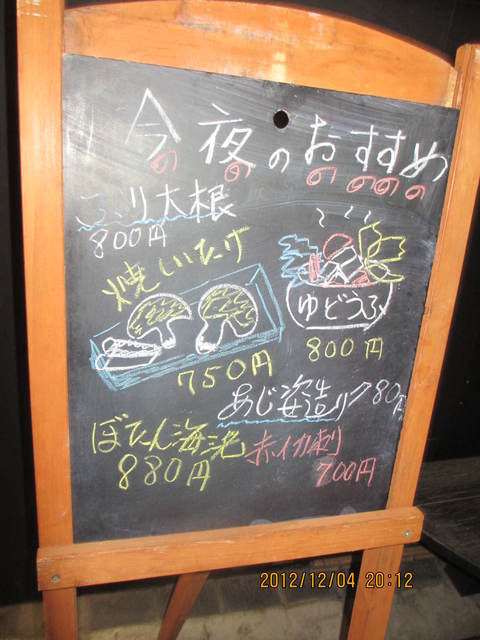 今夜のおすすめ
ぶり大根
800円
焼しいたけ
750円
ゆどうふ
800円
あじ姿造り
ぼたん海老
880円
赤イカ刺
700円
2012/12/04 20:12